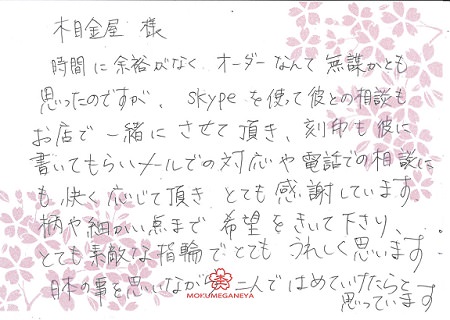 木目金屋 様
時間に余裕がなく オーダーなんて 無謀かとも
思ったのですが、skypeを使って彼との相談も
お店で一緒に させて頂き、刻印も彼に
書いてもらいメールでの対応や電話での相談に
も 快く応じて頂き とても感謝しています。
柄や細かい点まで 希望をきいて下さり、
とても 素敵な指輪で とても うれしく思います。
日本の事を思いながら 二人で はめていけたらと
思っています
MOKUMEGANEYA